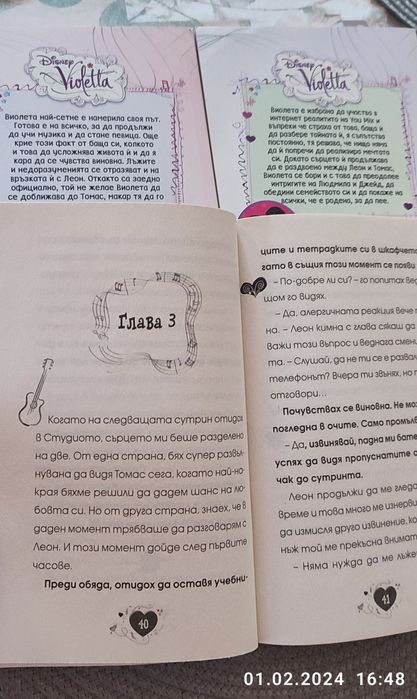 Disney
Violetta
Виолета най-сетне е намерила своя път.
Готова е на всичко, за да продължи
да учи музика и да стане певица. Още
крие този факт от баща си, колкото
и това да усложнява живота ѝ и да я
кара да се чувства виновна. Лъжите
и недоразуменията се отразяват и на
връзката ѝ с Леон. Откакто са заедно
официално, той не желае Виолета да
се доближава до Томас, накар тя да го
Disney
Violetta
Виолета е избрана да участва в
интернет реалитито на You Mix и
въпреки че страха от това, баща ѝ
да разбере тайната ѝ, я съпътства
постоянно, тя решава, че нищо няма
да ѝ попречи да реализира мечтата
си. Докато сърцето ѝ продължава
да е раздвоено между Леон и Томас,
Виолета се бори и с това да преодолее
интригите на Людмила и Джейд, да
обедини семейството си и да покаже на
всички, че е родена, за да пее.
Глава 3
Когато на следващата сутрин отидох
в Студиото, сърцето ми беше разделено
на две. От една страна, бях супер развъл-
нувана да видя Томас сега, когато най-на-
края бяхме решили да дадем шанс на лю-
бовта си. Но от друга страна, знаех, че в
даден момент трябваше да разговарям с
Леон. И този момент дойде след първите
часове.
Преди обяда, отидох да оставя учебни-
40
ците и тетрадките си в шкафчето
гато в същия този момент се появи
– По-добре ли си? – го попитах вед
щом го видях.
– Да, алергичната реакция вече
на. – Леон кимна с глава сякаш да
важи този въпрос и веднага смени
та. – Слушай, да не ти се е развал
телефонът? Вчера ти звънях, но
отговори...
Почувствах се виновна. Не мо
погледна в очите. Само промълв
– Да, извинявай, падна ми бате
успях да видя пропуснатите
чак до сутринта.
Леон продължи да ме гледа
време и това много ме изнерви
да измисля друго извинение, ко
нъж той ме прекъсна внимат
– Няма нужда да ме лъже
41
01.02.2024 16:48